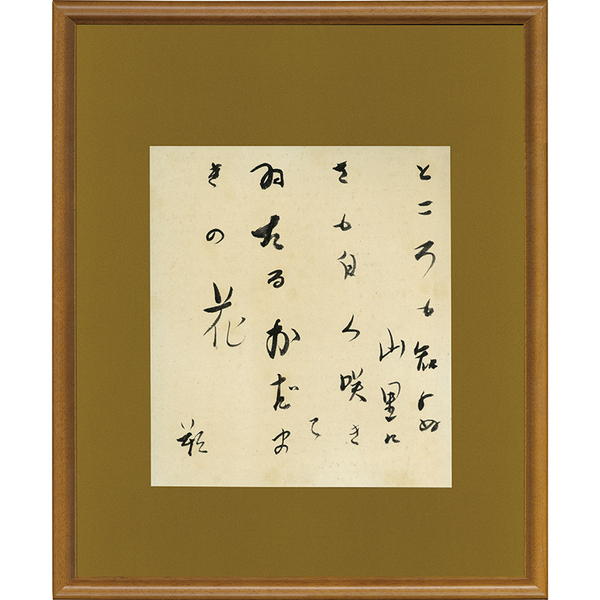 ところも知らぬ
山里に
さも白く咲き
て
ゐたるおだま
きの花